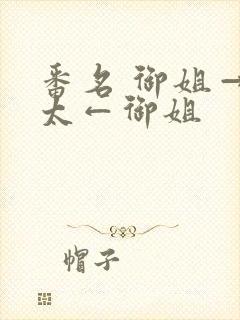 番名 御姐→
太←御姐
帽子